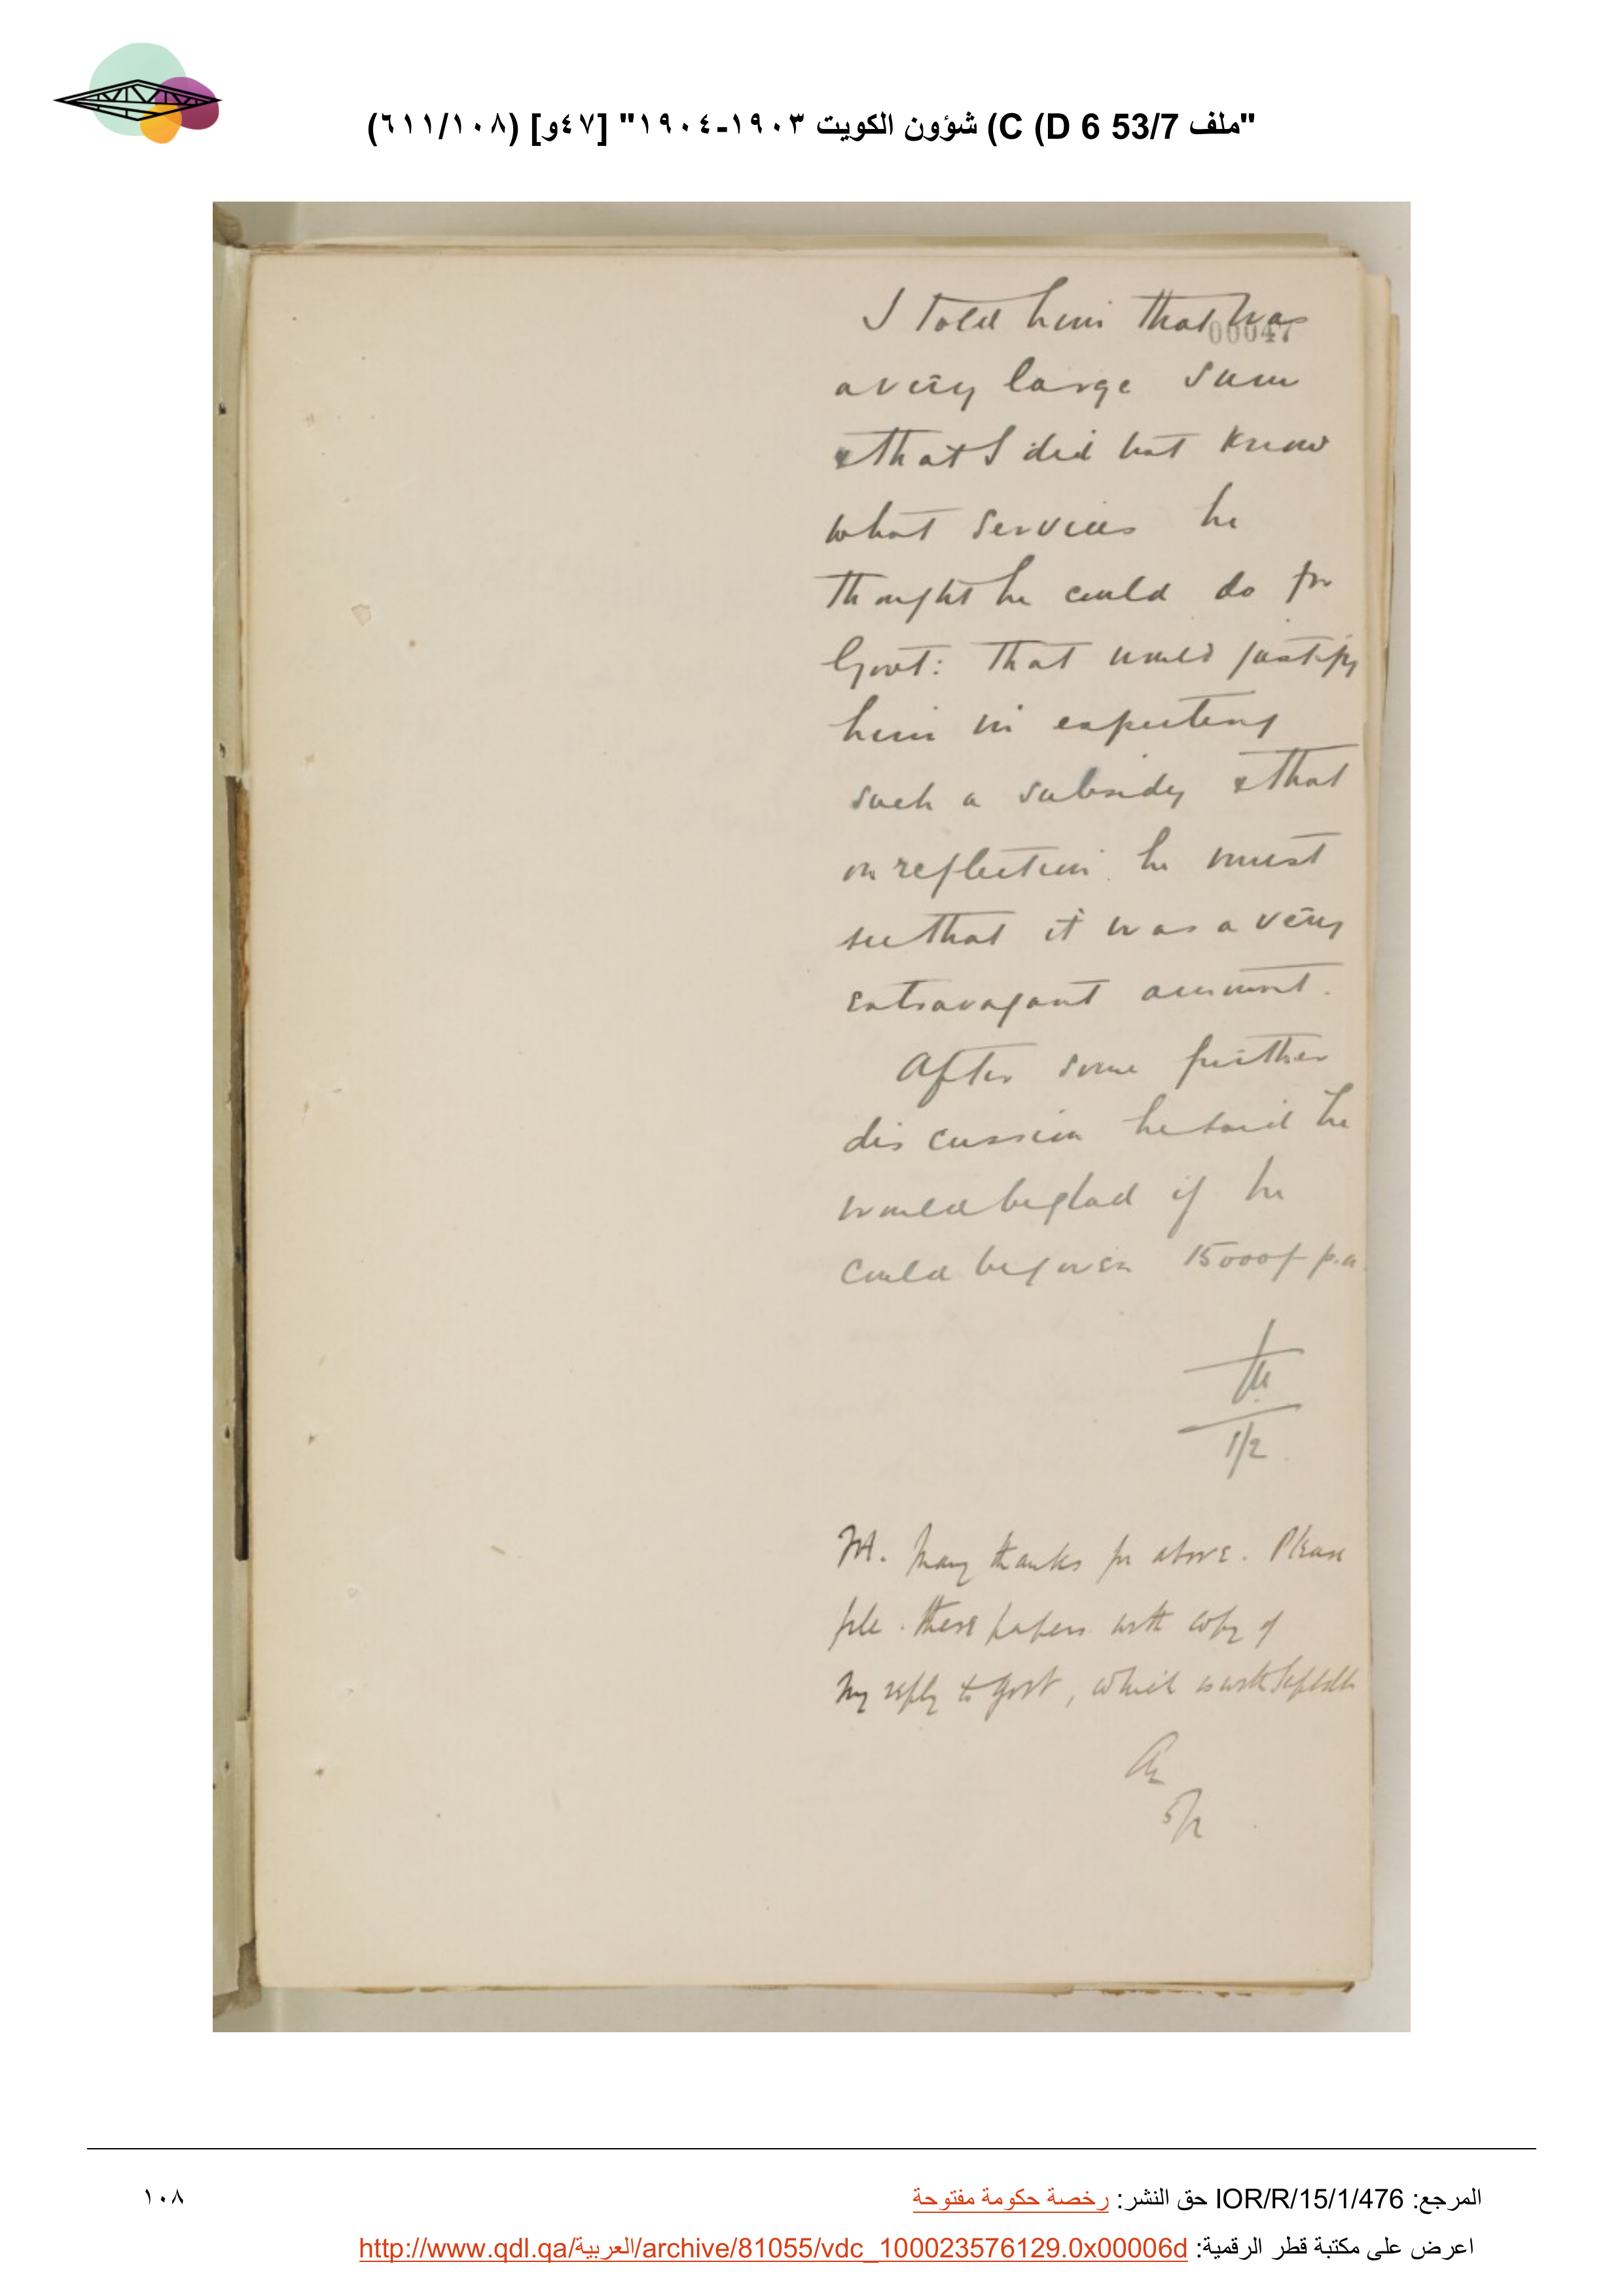 "ملف 53/7 D 6) C) شؤون الكويت ١٩٠٣-١٩٠٤" [٤٧و] (٦١١/١٠٨)
I told him that was
00047
a very large sum
& that I did not know
what services he
thought he could do for
Govt: that would justify
him in expecting
such a subsidy & that
on reflection he must
see that it was a very
extravagant amount.
After some further
discussion he said he
would be glad if he
could be given 15000/- p.a.
1/2
Many thanks for above. Please
file these papers with copy of
my reply to Govt, which is with
المرجع: IOR/R/15/1/476 حق النشر: رخصة حكومة مفتوحة
١٠٨
اعرض على مكتبة قطر الرقمية: http://www.qdl.qa/العربية/archive/81055/vdc_100023576129.0x00006d